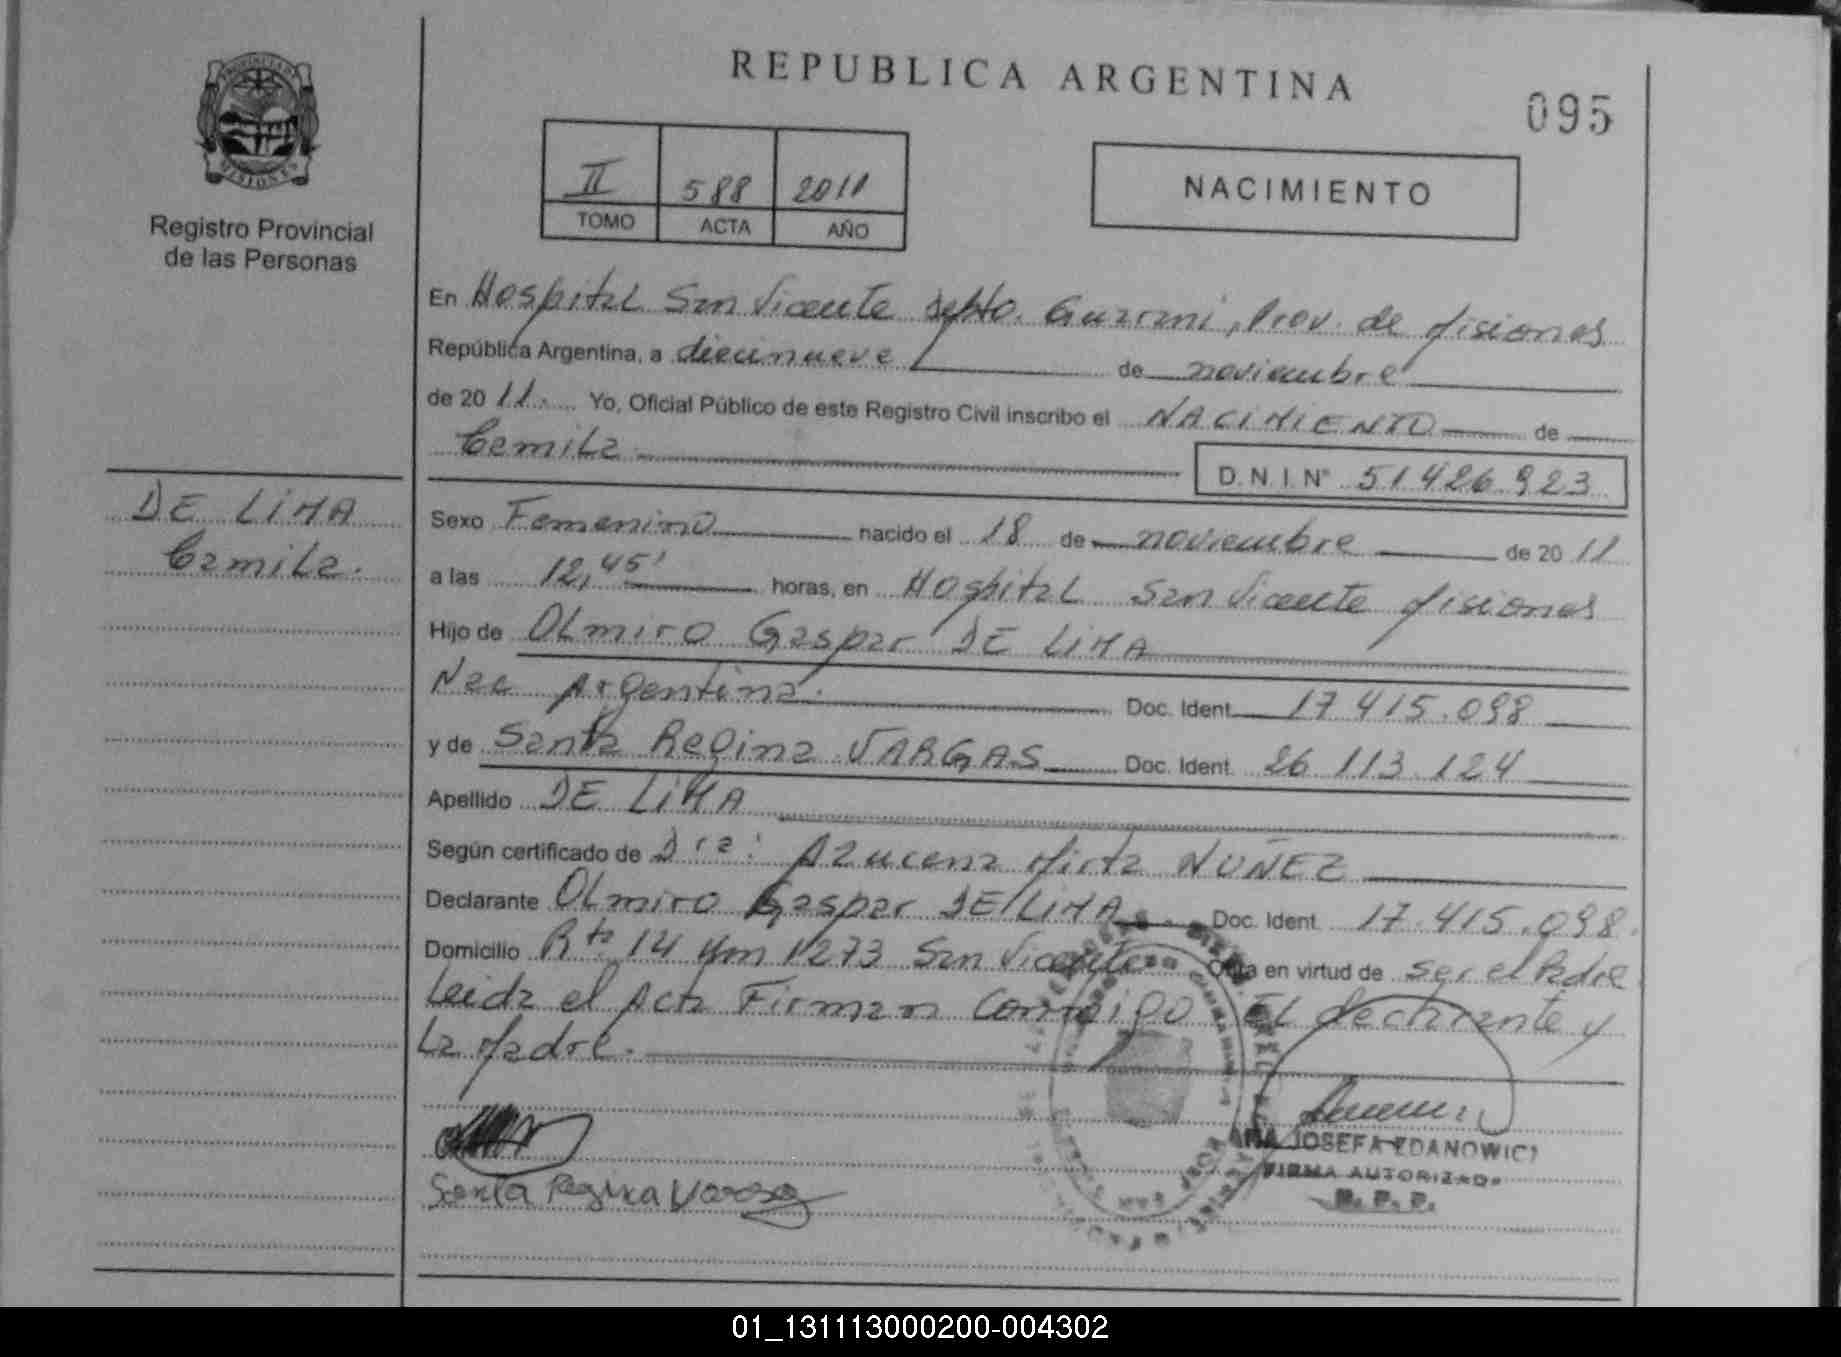 REPUBLICA ARGENTINA
095
PROVINCIA DE
MISIONES
Registro Provincial
de las Personas
II 588 2011
TOMO ACTA AÑO
NACIMIENTO
En Hospital San Vicente Depto. Guarani, Prov. de Misiones
República Argentina, a diecinueve de noviembre
de 2011. Yo, Oficial Público de este Registro Civil inscribo el NACIMIENTO de
Camila
D.N.I. N° 51426923
DE LIMA
Camila.
Sexo Femenino nacido el 18 de noviembre de 2011
a las 12,45' horas, en Hospital San Vicente Misiones
Hijo de OLmiro Gaspar DE LIMA
Nac Argentina. Doc. Ident. 17.415.098
y de Santa Regina VARGAS Doc. Ident. 26.113.124
Apellido DE LIMA
Según certificado de Dra: Azucena Mirta NUÑEZ
Declarante OLmiro Gaspar DE LIMA Doc. Ident. 17.415.098.
Domicilio Rta 14 Km 1273 San Vicente Obra en virtud de ser el Padre
Leida el Acta Firman Conmigo El declarante y
La Madre.
Santa Regina Vargas
ANA JOSEFA ZDANOWICZ
FIRMA AUTORIZADA
R. P. P.
01_131113000200-004302